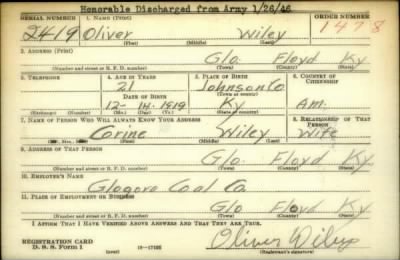 Honorable Discharged from Army 1/26/46
SERIAL NUMBER 1. NAME (Print) ORDER NUMBER
2419 Oliver Wiley 1478
(First) (Middle) (Last)
2. ADDRESS (Print)
Glo Floyd Ky
(Number and street or R. F. D. number) (Town) (County) (State)
3. TELEPHONE 4. AGE IN YEARS 5. PLACE OF BIRTH 6. COUNTRY OF CITIZENSHIP
21 Johnson Co
DATE OF BIRTH (Town or county)
12- 14- 1919 Ky Am.
(Exchange) (Number) (Mo.) (Day) (Yr.) (State or country)
7. NAME OF PERSON WHO WILL ALWAYS KNOW YOUR ADDRESS 8. RELATIONSHIP OF THAT PERSON
Corine Wiley Wife
(Mr., Mrs., Miss) (First) (Middle) (Last)
9. ADDRESS OF THAT PERSON
Glo Floyd Ky
(Number and street or R. F. D. number) (Town) (County) (State)
10. EMPLOYER'S NAME
Glogora Coal Co
11. PLACE OF EMPLOYMENT OR BUSINESS
Glo Floyd Ky
(Number and street or R. F. D. number) (Town) (County) (State)
I AFFIRM THAT I HAVE VERIFIED ABOVE ANSWERS AND THAT THEY ARE TRUE.
REGISTRATION CARD
D. S. S. FORM 1 Oliver Wiley
(Registrant's signature)